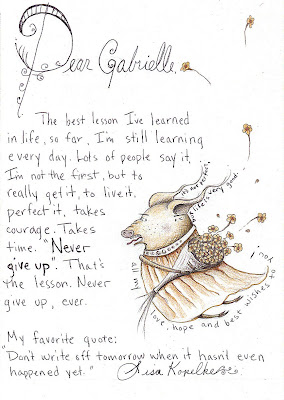 Dear Gabrielle,
The best lesson I've learned
in life, so far, I'm still learning
every day. Lots of people say it,
I'm not the first, but to
really get it, to live it,
perfect it, takes
courage. Takes
time. "Never
give up". That's
the lesson. Never
give up, ever.
it's not perfect,
life is very good.
all my love, hope and best wishes to you!
My favorite quote:
"Don't write off tomorrow when it hasn't even
happened yet."
Lisa Kopelke